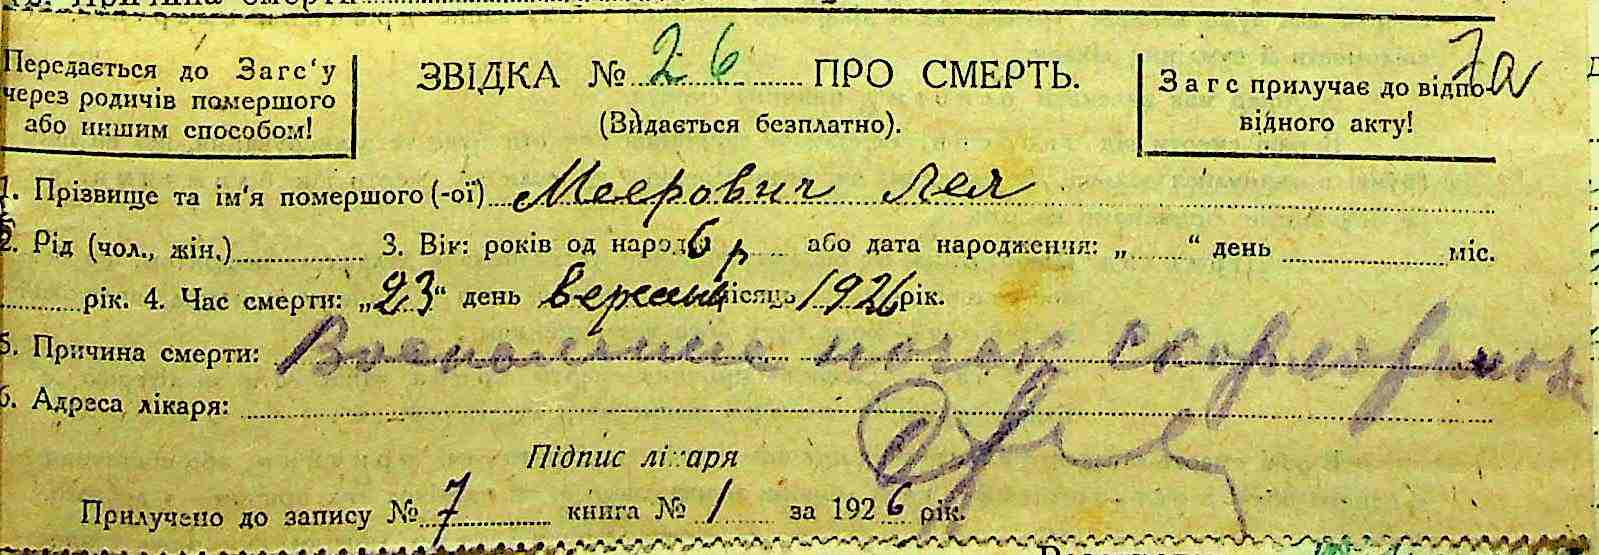 Передається до Загс'у
через родичів помершого
або иншим способом!
ЗВІДКА № 26 ПРО СМЕРТЬ.
(Видається безплатно).
7а
Загс прилучає до відпо-
відного акту!
1. Прізвище та ім'я помершого (-ої) Меерович Лея
2. Рід (чол., жін.) 3. Вік: років од народ. 6 р або дата народження: „ “ день міс.
рік. 4. Час смерти: „23“ день вересня місяць 1926 рік.
5. Причина смерти: Воспаление почек
6. Адреса лікаря:
Підпис лікаря
Прилучено до запису № 7 книга № 1 за 1926 рік.